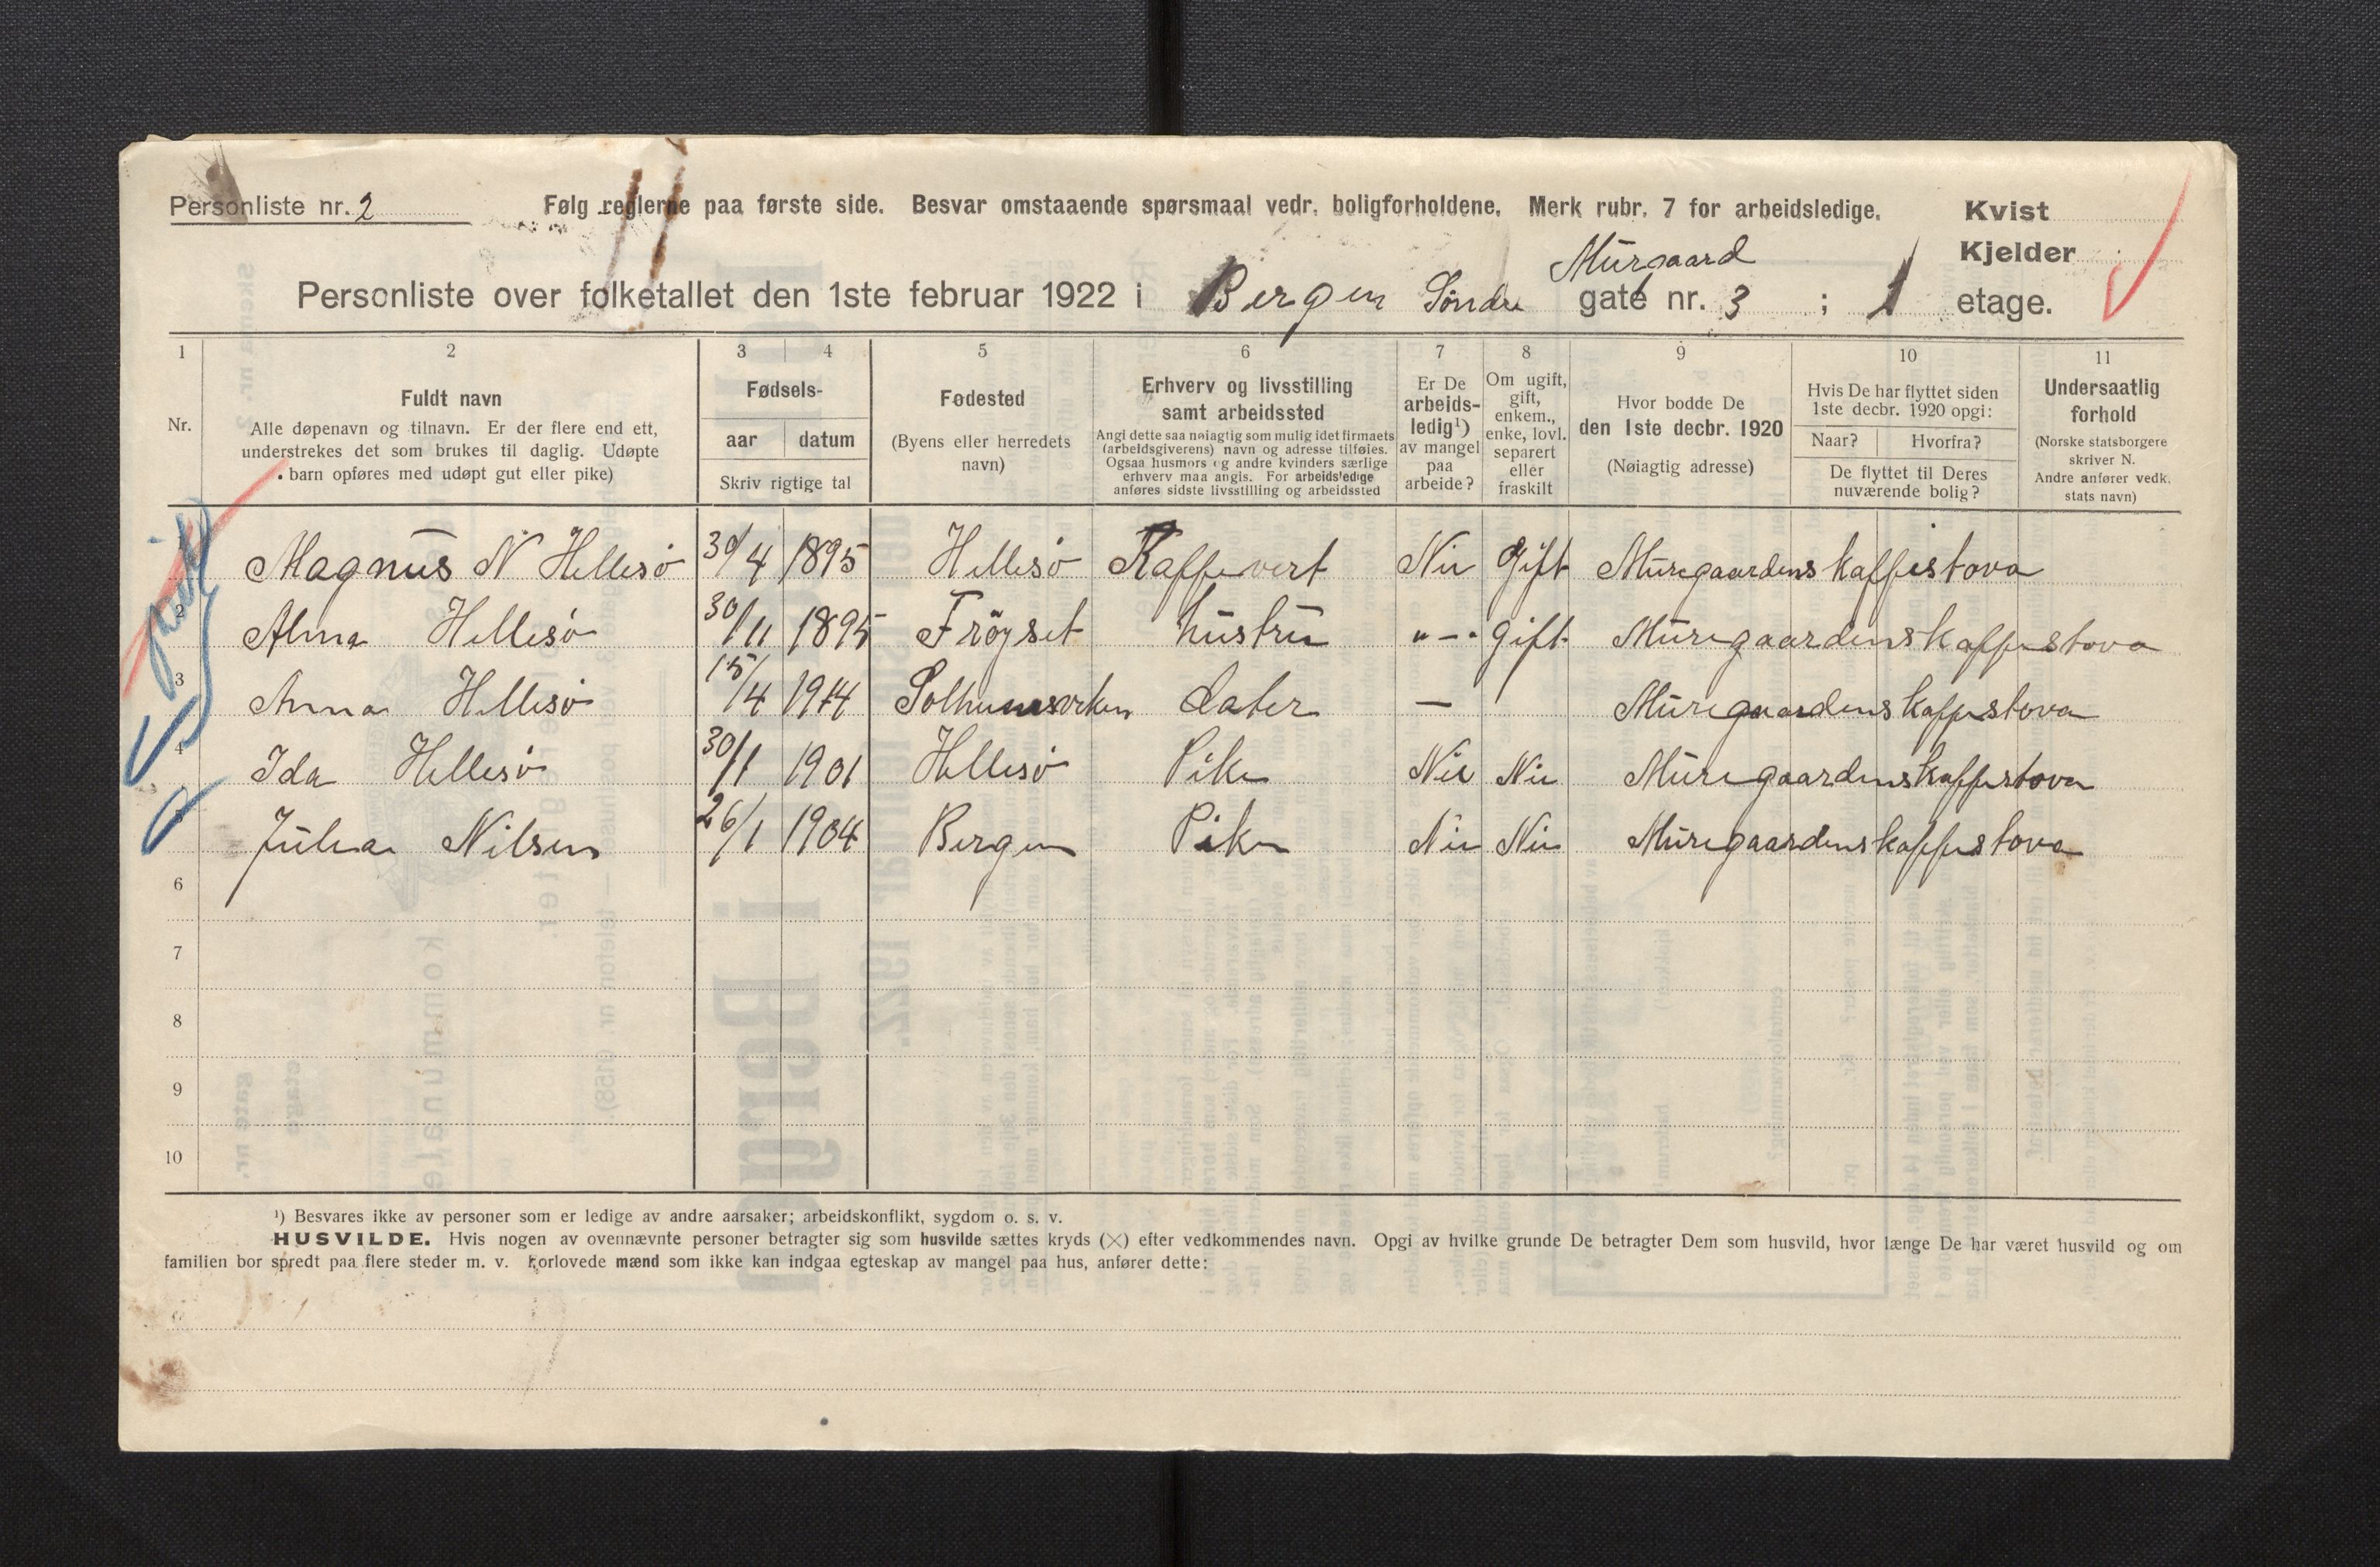 Personliste nr. 2 Følg reglerne paa første side. Besvar omstaaende spørsmaal vedr. boligforholdene. Merk rubr. 7 for arbeidsledige. Kvist
Kjelder
Murgaard
Personliste over folketallet den 1ste februar 1922 i Bergen Söndre gate nr. 3 ; 1 etage.
1 2 3 4 5 6 7 8 9 10 11
Nr.
Fuldt navn
Alle døpenavn og tilnavn. Er der flere end ett,
understrekes det som brukes til daglig. Udøpte
barn opføres med udøpt gut eller pike)
Fødsels-
aar datum
Skriv rigtige tal
Fødested
(Byens eller herredets
navn)
Erhverv og livsstilling
samt arbeidssted
Angi dette saa nøiagtig som mulig idet firmaets
(arbeidsgiverens) navn og adresse tilføies.
Ogsaa husmors og andre kvinders særlige
erhverv maa angis. For arbeidsledige
anføres sidste livsstilling og arbeidssted
Er De
arbeids-
ledig¹)
av mangel
paa
arbeide?
Om ugift,
gift,
enkem.,
enke, lovl.
separert
eller
fraskilt
Hvor bodde De
den 1ste decbr. 1920
(Nøiagtig adresse)
Hvis De har flyttet siden
1ste decbr. 1920 opgi:
Naar? Hvorfra?
De flyttet til Deres
nuværende bolig?
Undersaatlig
forhold
(Norske statsborgere
skriver N.
Andre anfører vedk.
stats navn)
Magnus N Hellesö 30/4 1895 Hellesö Kaffevert Nei Gift Muregaardens kaffistova
2 Alma Hellesö 30/11 1895 Fröyset hustru "-" gift Muregaardens kaffistova
3 Anna Hellesö 15/4 1914 dater — Muregaardens kaffistova
4 Ida Hellesö 30/1 1901 Hellesö Pike Nei Nei Muregaardens kaffistova
5 Julia Nilsen 26/1 1904 Bergen Pike Nei Nei Muregaardens kaffistova
6
7
8
9
10
¹) Besvares ikke av personer som er ledige av andre aarsaker; arbeidskonflikt, sygdom o. s. v.
HUSVILDE. Hvis nogen av ovennævnte personer betragter sig som husvilde sættes kryds (×) efter vedkommendes navn. Opgi av hvilke grunde De betragter Dem som husvild, hvor længe De har været husvild og om
familien bor spredt paa flere steder m. v. Forlovede mænd som ikke kan indgaa egteskap av mangel paa hus, anfører dette: